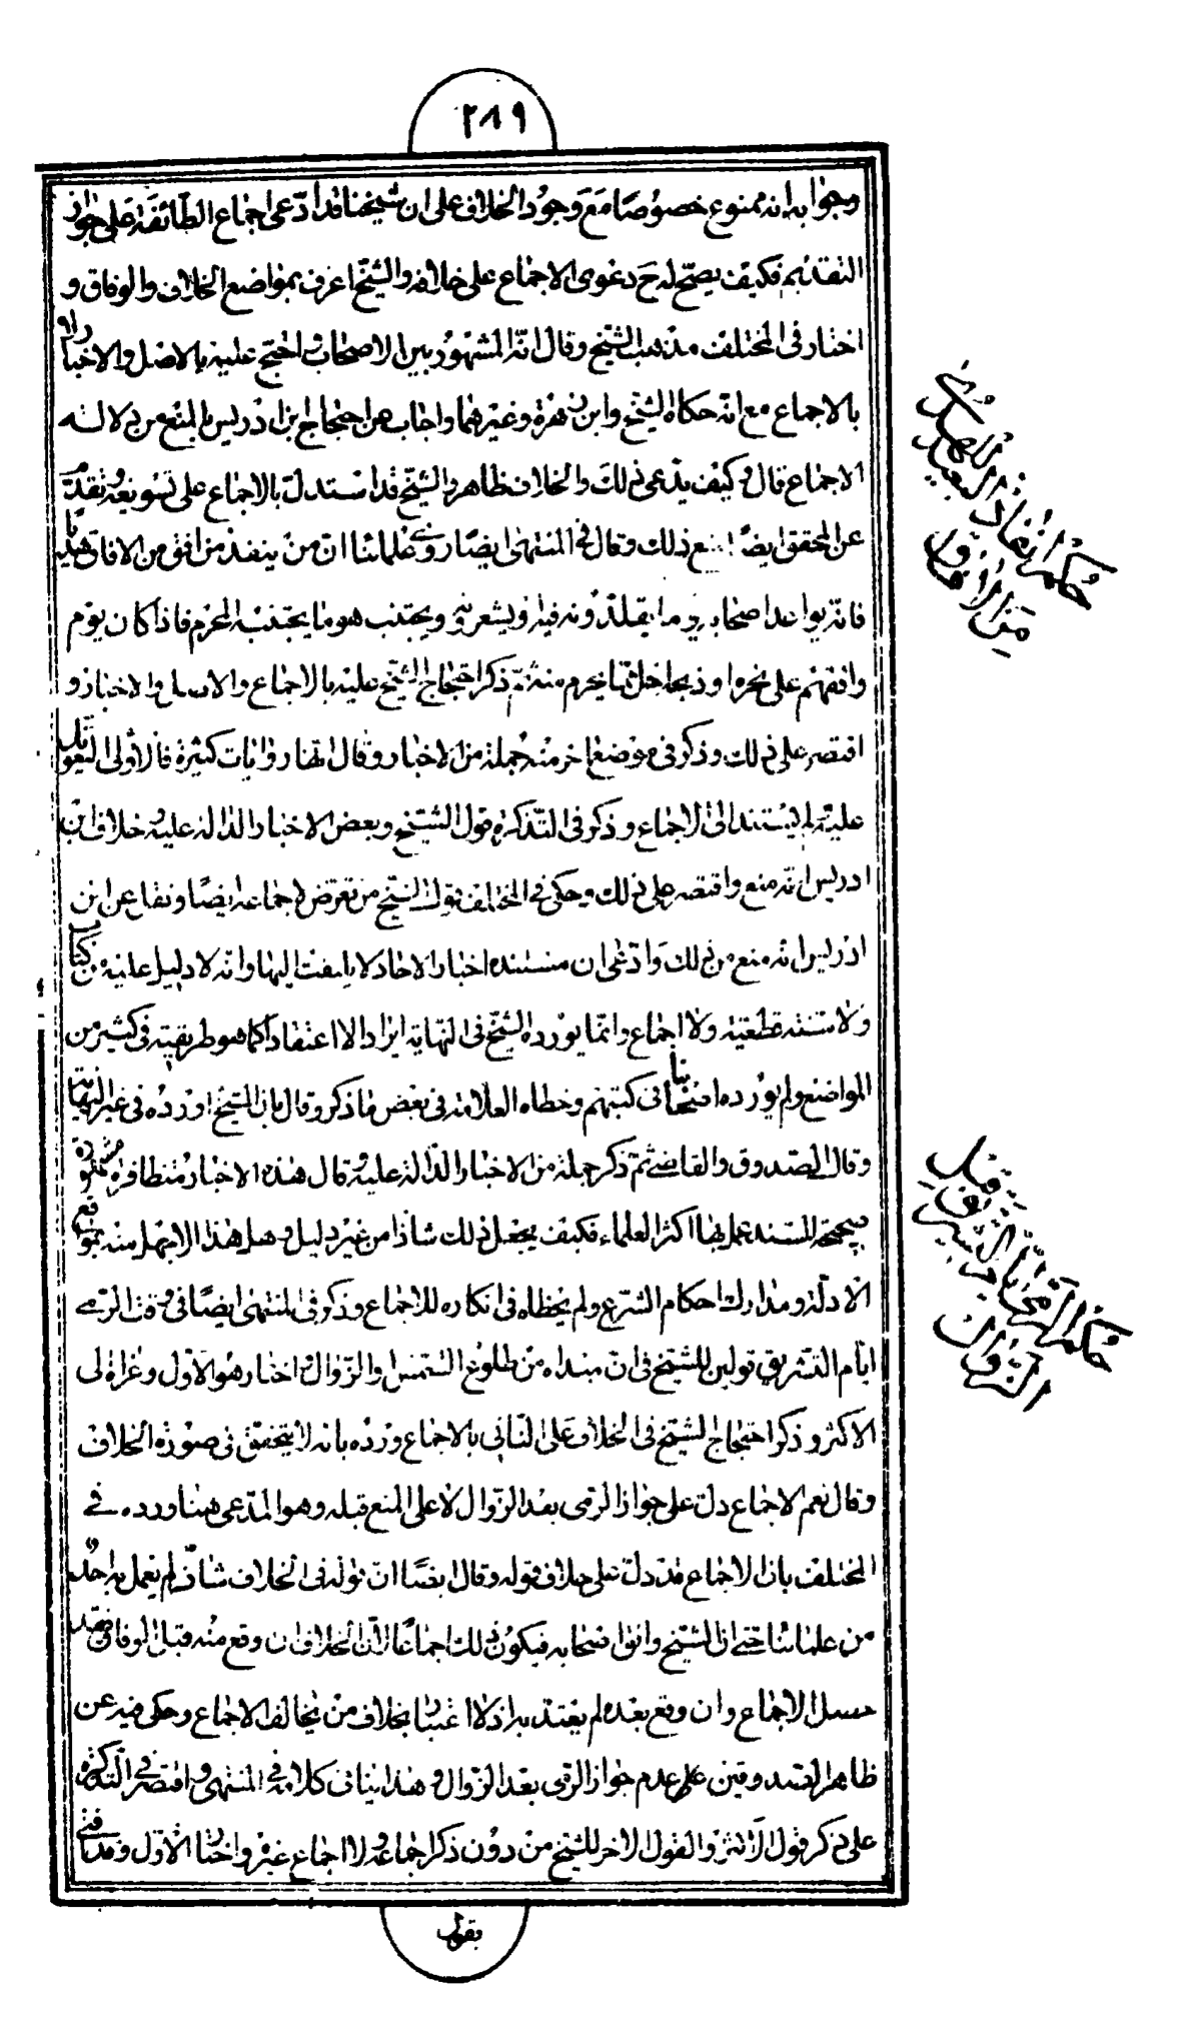 ٢٨٩
وجوابه انه ممنوع خصوصا مع وجود الخلاف على ان شيخنا قد ادعى اجماع الطائفة على جواز
التقديم فكيف يصح له ح دعوى الاجماع على خلافه والشيخ اعرف بمواضع الخلاف والوفاق و
اختار فى المختلف مذهب الشيخ وقال انه المشهور بين الاصحاب واحتج عليه بالاصل والاخبار لا
بالاجماع مع انه حكاه الشيخ وابن زهرة وغيرهما واجاب عن احتجاج ابن ادريس بالمنع من دلالة
الاجماع قال وكيف يدعى ذلك والخلاف ظاهر والشيخ قد استدل بالاجماع على تسويغه وتقدم
عن المحقق ايضا منع ذلك وقال فى المنتهى ايضا روى علمائنا ان من ينفذ من افق من الافاق هديا
فانه يواعد اصحابه يوما يقلدونه فيه او يشعرونه ويجتنب هو ما يجتنبه المحرم فاذا كان يوم
وافقهم على نحره او ذبحه احل مما يحرم منه ثم ذكر احتجاج الشيخ عليه بالاجماع والاصل والاخبار و
اقتصر على ذلك وذكر فى موضع اخر منه جملة من الاخبار وقال انها روايات كثيرة فالاولى التعويل
عليه ولم يستند الى الاجماع وذكر فى التذكرة قول الشيخ وبعض الاخبار الدالة عليه وخلاف ابن
ادريس انه منع واقتصر على ذلك وحكى فى المختلف قول الشيخ من تعرض لاجماعه ايضا ونقل عن ابن
ادريس انه منع من ذلك وادعى ان مستنده اخبار الاحاد لا يلتفت اليها وانه لا دليل عليه من كتاب
ولا سنة قطعية ولا اجماع وانما يورده الشيخ فى النهاية ايرادا لا اعتقادا كما هو طريقته فى كثير من
المواضع ولم يورده اصحابنا فى كتبهم وخطاه العلامة فى بعض ما ذكر وقال بان الشيخ اورده فى غير النهاية
وقال الصدوق والقاضى ثم ذكر جملة من الاخبار الدالة عليه وقال هذه الاخبار متظافرة مشهورة
صحيحة السند عمل بها اكثر العلماء فكيف يجعل ذلك شاذا من غير دليل وهل هذا الا جهل منه بمواقع
الادلة ومدارك احكام الشرع ولم يخطاه فى انكاره للاجماع وذكر فى المنتهى ايضا فى وقت الرمى
ايام التشريق قولين للشيخ فى ان مبداه من طلوع الشمس والزوال واختار هو الاول وعزاه الى
الاكثر وذكر احتجاج الشيخ فى الخلاف على الثانى بالاجماع ورده بانه لا يتحقق فى صورة الخلاف
وقال نعم الاجماع دل على جواز الرمى بعد الزوال لا على المنع قبله وهو المدعى هنا ورده فى
المختلف بان الاجماع قد دل على خلاف قوله وقال ايضا ان قوله فى الخلاف شاذ لم يعمل به احد
من علمائنا حتى ان الشيخ وافق اصحابه فيكون ذلك اجماعا لان الخلاف ان وقع منه قبل الوفاق فقد
حصل الاجماع وان وقع بعده لم يعتد به اذ لا اعتبار بخلاف من يخالف الاجماع وحكى فيه عن
ظاهر الصدوقين على عدم جواز الرمى بعد الزوال وهذا ينافى كلامه فى المنتهى واقتصر فى التذكرة
على ذكر قول الاكثر والقول الاخر للشيخ من دون ذكر اجماعه ولا اجماع غيره واختار الاول وقد
بقول
حكم انفاذ البعيد الهدى
من الافاق
حكم الرمى ايام التشريق قبل
الزوال